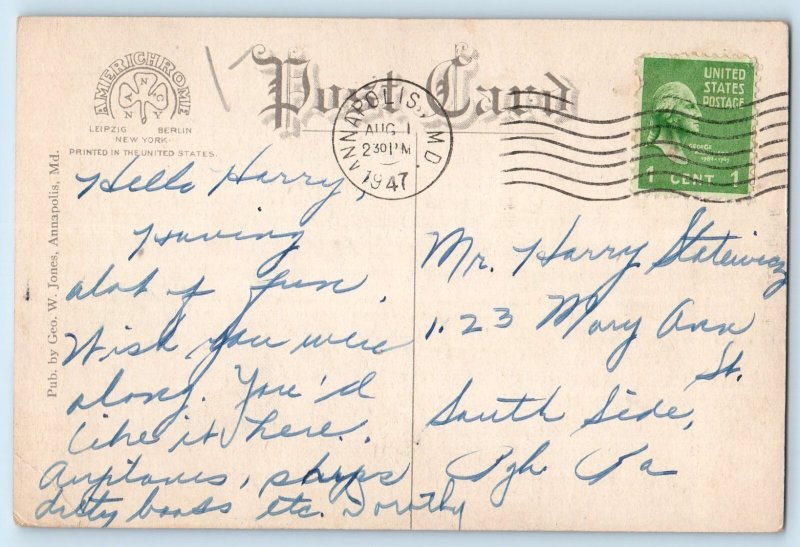 AMERICHROME
ANNCO NY
LEIPZIG BERLIN
NEW YORK
PRINTED IN THE UNITED STATES.
Post Card
ANNAPOLIS, MD.
AUG 1
2 30 PM
1947
UNITED
STATES
POSTAGE
GEORGE
1 CENT 1
Pub. by Geo. W. Jones, Annapolis, Md.
Hello Harry,
Having
alot of fun.
Wish you were
along. You'd
like it here.
Airplanes, ships
dirty boats etc. Dorothy
Mr. Harry Statewicz
123 Mary Ann
St.
South Side,
Pgh Pa